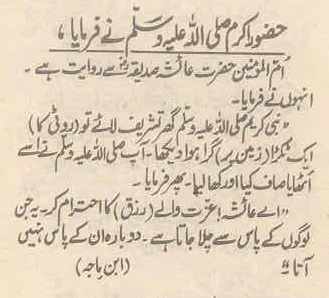 حضور اکرم صلی اللہ علیہ وسلم نے فرمایا،
اُمّ المؤمنین حضرت عائشہ صدیقہؓ سے روایت ہے۔
انہوں نے فرمایا۔
”نبی کریم صلی اللہ علیہ وسلم گھر تشریف لائے تو (روٹی کا)
ایک ٹکڑا (زمین پر) گرا ہوا دیکھا۔ آپ صلی اللہ علیہ وسلم نے اسے
اُٹھایا صاف کیا اور کھا لیا۔ پھر فرمایا۔
”اے عائشہ! عزت والے (رزق) کا احترام کر۔ یہ جن
لوگوں کے پاس سے چلا جاتا ہے۔ دوبارہ ان کے پاس نہیں
آتا“ (ابن ماجہ)